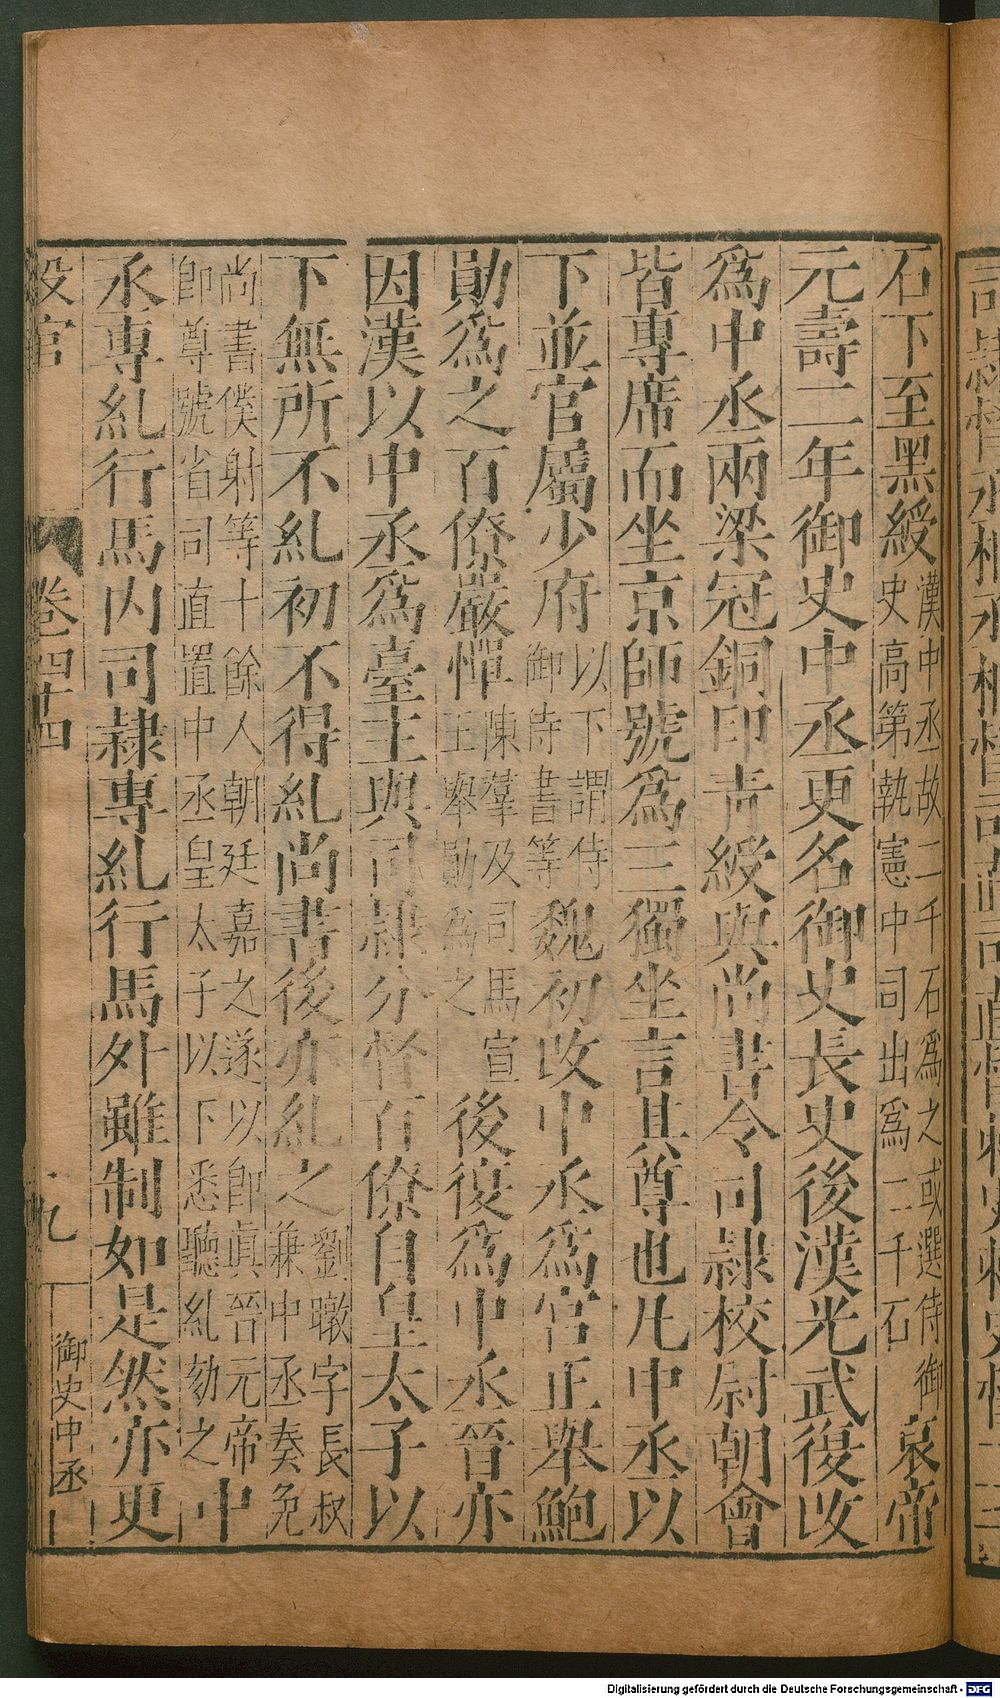 石下至黑綬漢中丞故二千石爲之或選侍御史高第執憲中司出爲二千石哀帝
元壽二年御史中丞更名御史長史後漢光武復改
爲中丞兩梁冠銅印青綬與尚書令司隷校尉朝會
皆專席而坐京師號爲三獨坐言其尊也凡中丞以
下並官屬少府以下謂侍御侍書等魏初改中丞爲官正舉鮑
勛爲之百僚嚴憚陳羣及司馬宣王舉勛爲之後復爲中丞晉亦
因漢以中丞爲臺主與司隷分督百僚自皇太子以
下無所不糺初不得糺尚書後亦糺之劉暾字長叔兼中丞奏免
尚書僕射等十餘人朝廷嘉之遂以卽眞晉元帝卽尊號省司直置中丞皇太子以下悉聽糺劾之中
丞專糺行馬内司隷專糺行馬外雖制如是然亦更
設官 卷四十四 九 御史中丞
Digitalisierung gefördert durch die Deutsche Forschungsgemeinschaft - DFG